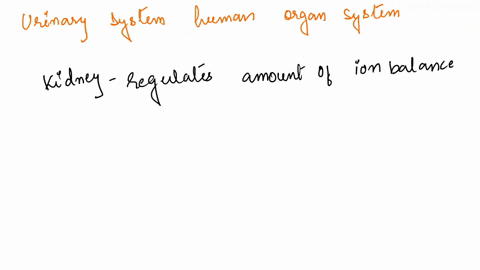 Urinary system human organ system
Kidney - regulates amount of ion balance